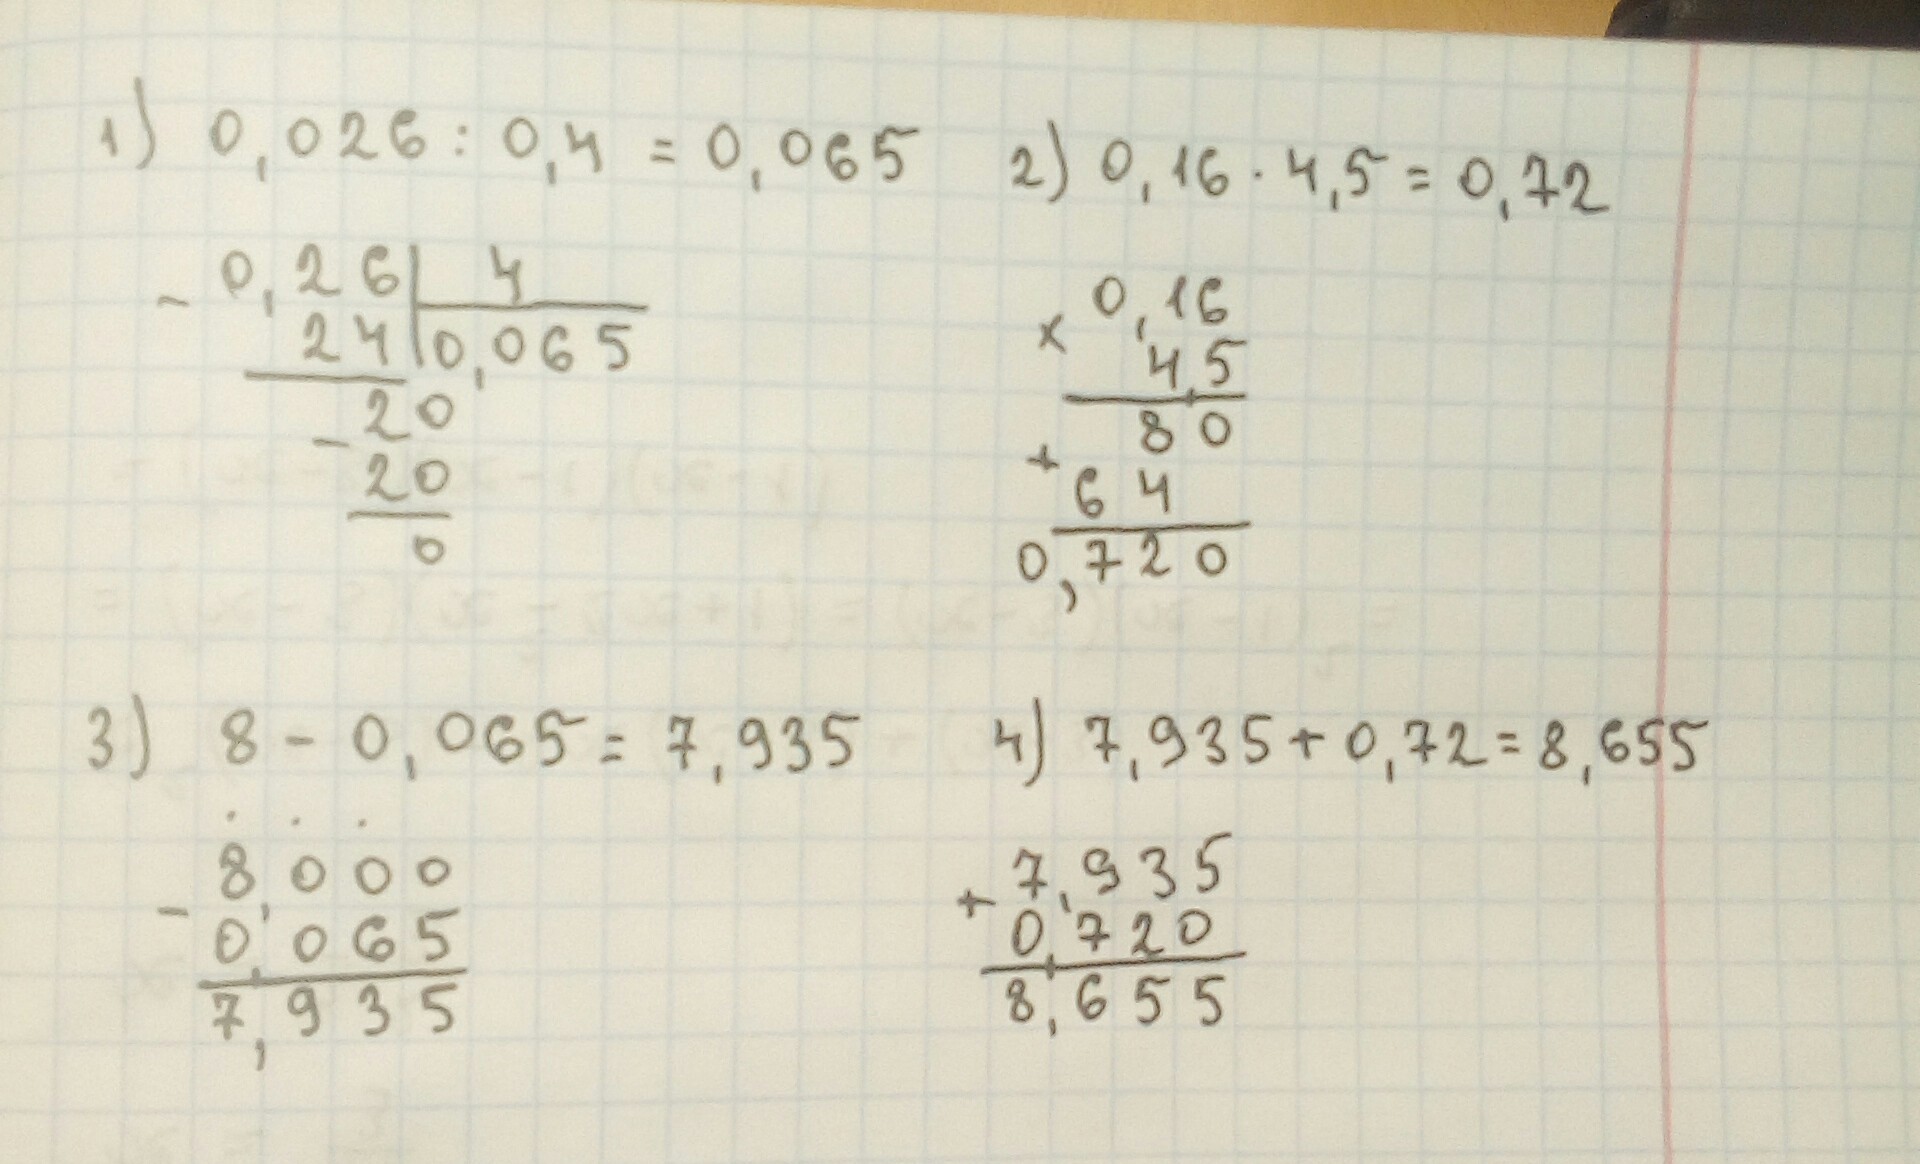 1) 0,026 : 0,4 = 0,065
- 0,26 | 4
24 | 0,065
- 20
20
0
2) 0,16 · 4,5 = 0,72
× 0,16
4,5
80
+ 64
0,720
3) 8 - 0,065 = 7,935
. . .
- 8,000
0,065
7,935
4) 7,935 + 0,72 = 8,655
+ 7,935
0,720
8,655